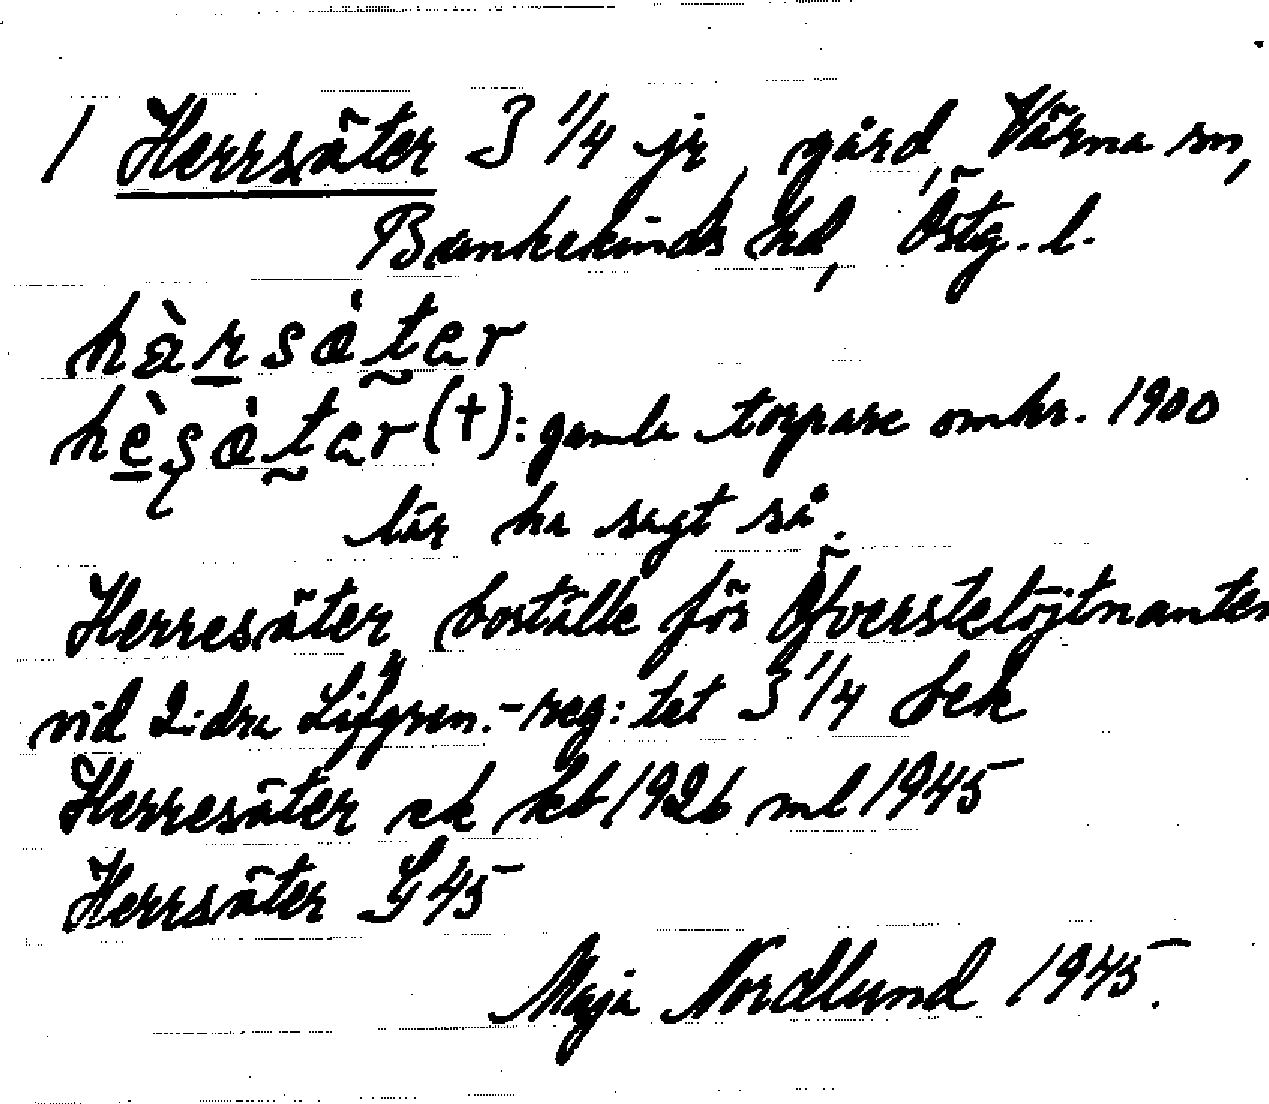 1 Herrsäter 3 1/4 jr, gård, Värna sn,
Bankekinds hd, Östg. l.
hàrsá̀tar
hèsàtar (†): gamla torpare omkr. 1900
lär ha sagt så.
Herresäter boställe för Öfverstelöjtnanten
vid 2:dra Lifgren.-reg:tet 3 1/4 Jek
Herresäter ek kb 1926 ml 1945
Herrsäter Y45
Maja Nordlund 1945.